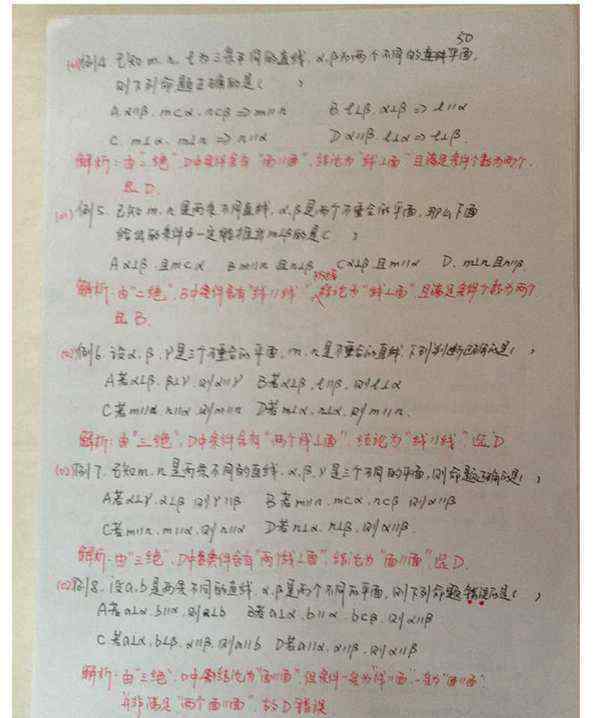 50
例4. 已知m.n.l为三条不同的直线, α.β为两个不同的平面,
则下列命题正确的是( )
A. α∥β, m⊂α, n⊂β ⇒ m∥n  B. l⊥β, α⊥β ⇒ l∥α
C. m⊥α, m⊥n ⇒ n∥α  D α∥β, l⊥α ⇒ l⊥β.
解析: 由“二绝”, D中条件含有“面∥面”, 结论为“线⊥面”且满足条件个数为两个,
选D.
例5. 已知m.n是两条不同直线, α.β是两个不重合的平面, 那么下面
给出的条件中一定能推出m⊥β的是( )
A α⊥β 且m⊂α  B m∥n 且n⊥β  C α⊥β 且m∥α  D. m⊥n且n∥β
解析: 由“二绝”, B中条件含有“线∥线”, 结论为“线⊥面”且满足条件个数为两个
选B.
例6. 设α.β.γ是三个不重合的平面, m.n是不重合的直线, 下列判断正确的是( )
A若α⊥β, β⊥γ, 则α∥γ  B若α⊥β, l∥β, 则l⊥α
C若m∥α, n∥α, 则m∥n  D若m⊥α, n⊥α, 则m∥n.
解析: 由“三绝”, D中条件含有“两个线⊥面”, 结论为“线∥线”, 选D
例7. 已知m.n是两条不同的直线, α.β.γ是三个不同的平面, 则命题正确的是( )
A若α⊥γ, α⊥β 则γ∥β  B若m∥n, m⊂α, n⊂β, 则α∥β
C若m∥n, m∥α, 则n∥α  D若n⊥α, n⊥β, 则α∥β.
解析: 由“三绝”, D中条件含有“两个线⊥面”, 结论为“面∥面”, 选D.
例8. 设a.b是两条不同的直线, α.β是两个不同的平面, 则下列命题错误的是( )
A若a⊥α, b∥α, 则a⊥b  B若a⊥α, b∥a, b⊂β, 则α⊥β
C若a⊥α, b⊥β, α∥β, 则a∥b  D若a∥α, a∥β, 则α∥β
解析: 由“三绝”, D中结论为“面∥面”, 但条件一定为“线∥面”, 一定为“面∥面”
并非满足“两个面∥面”, 故D错误.